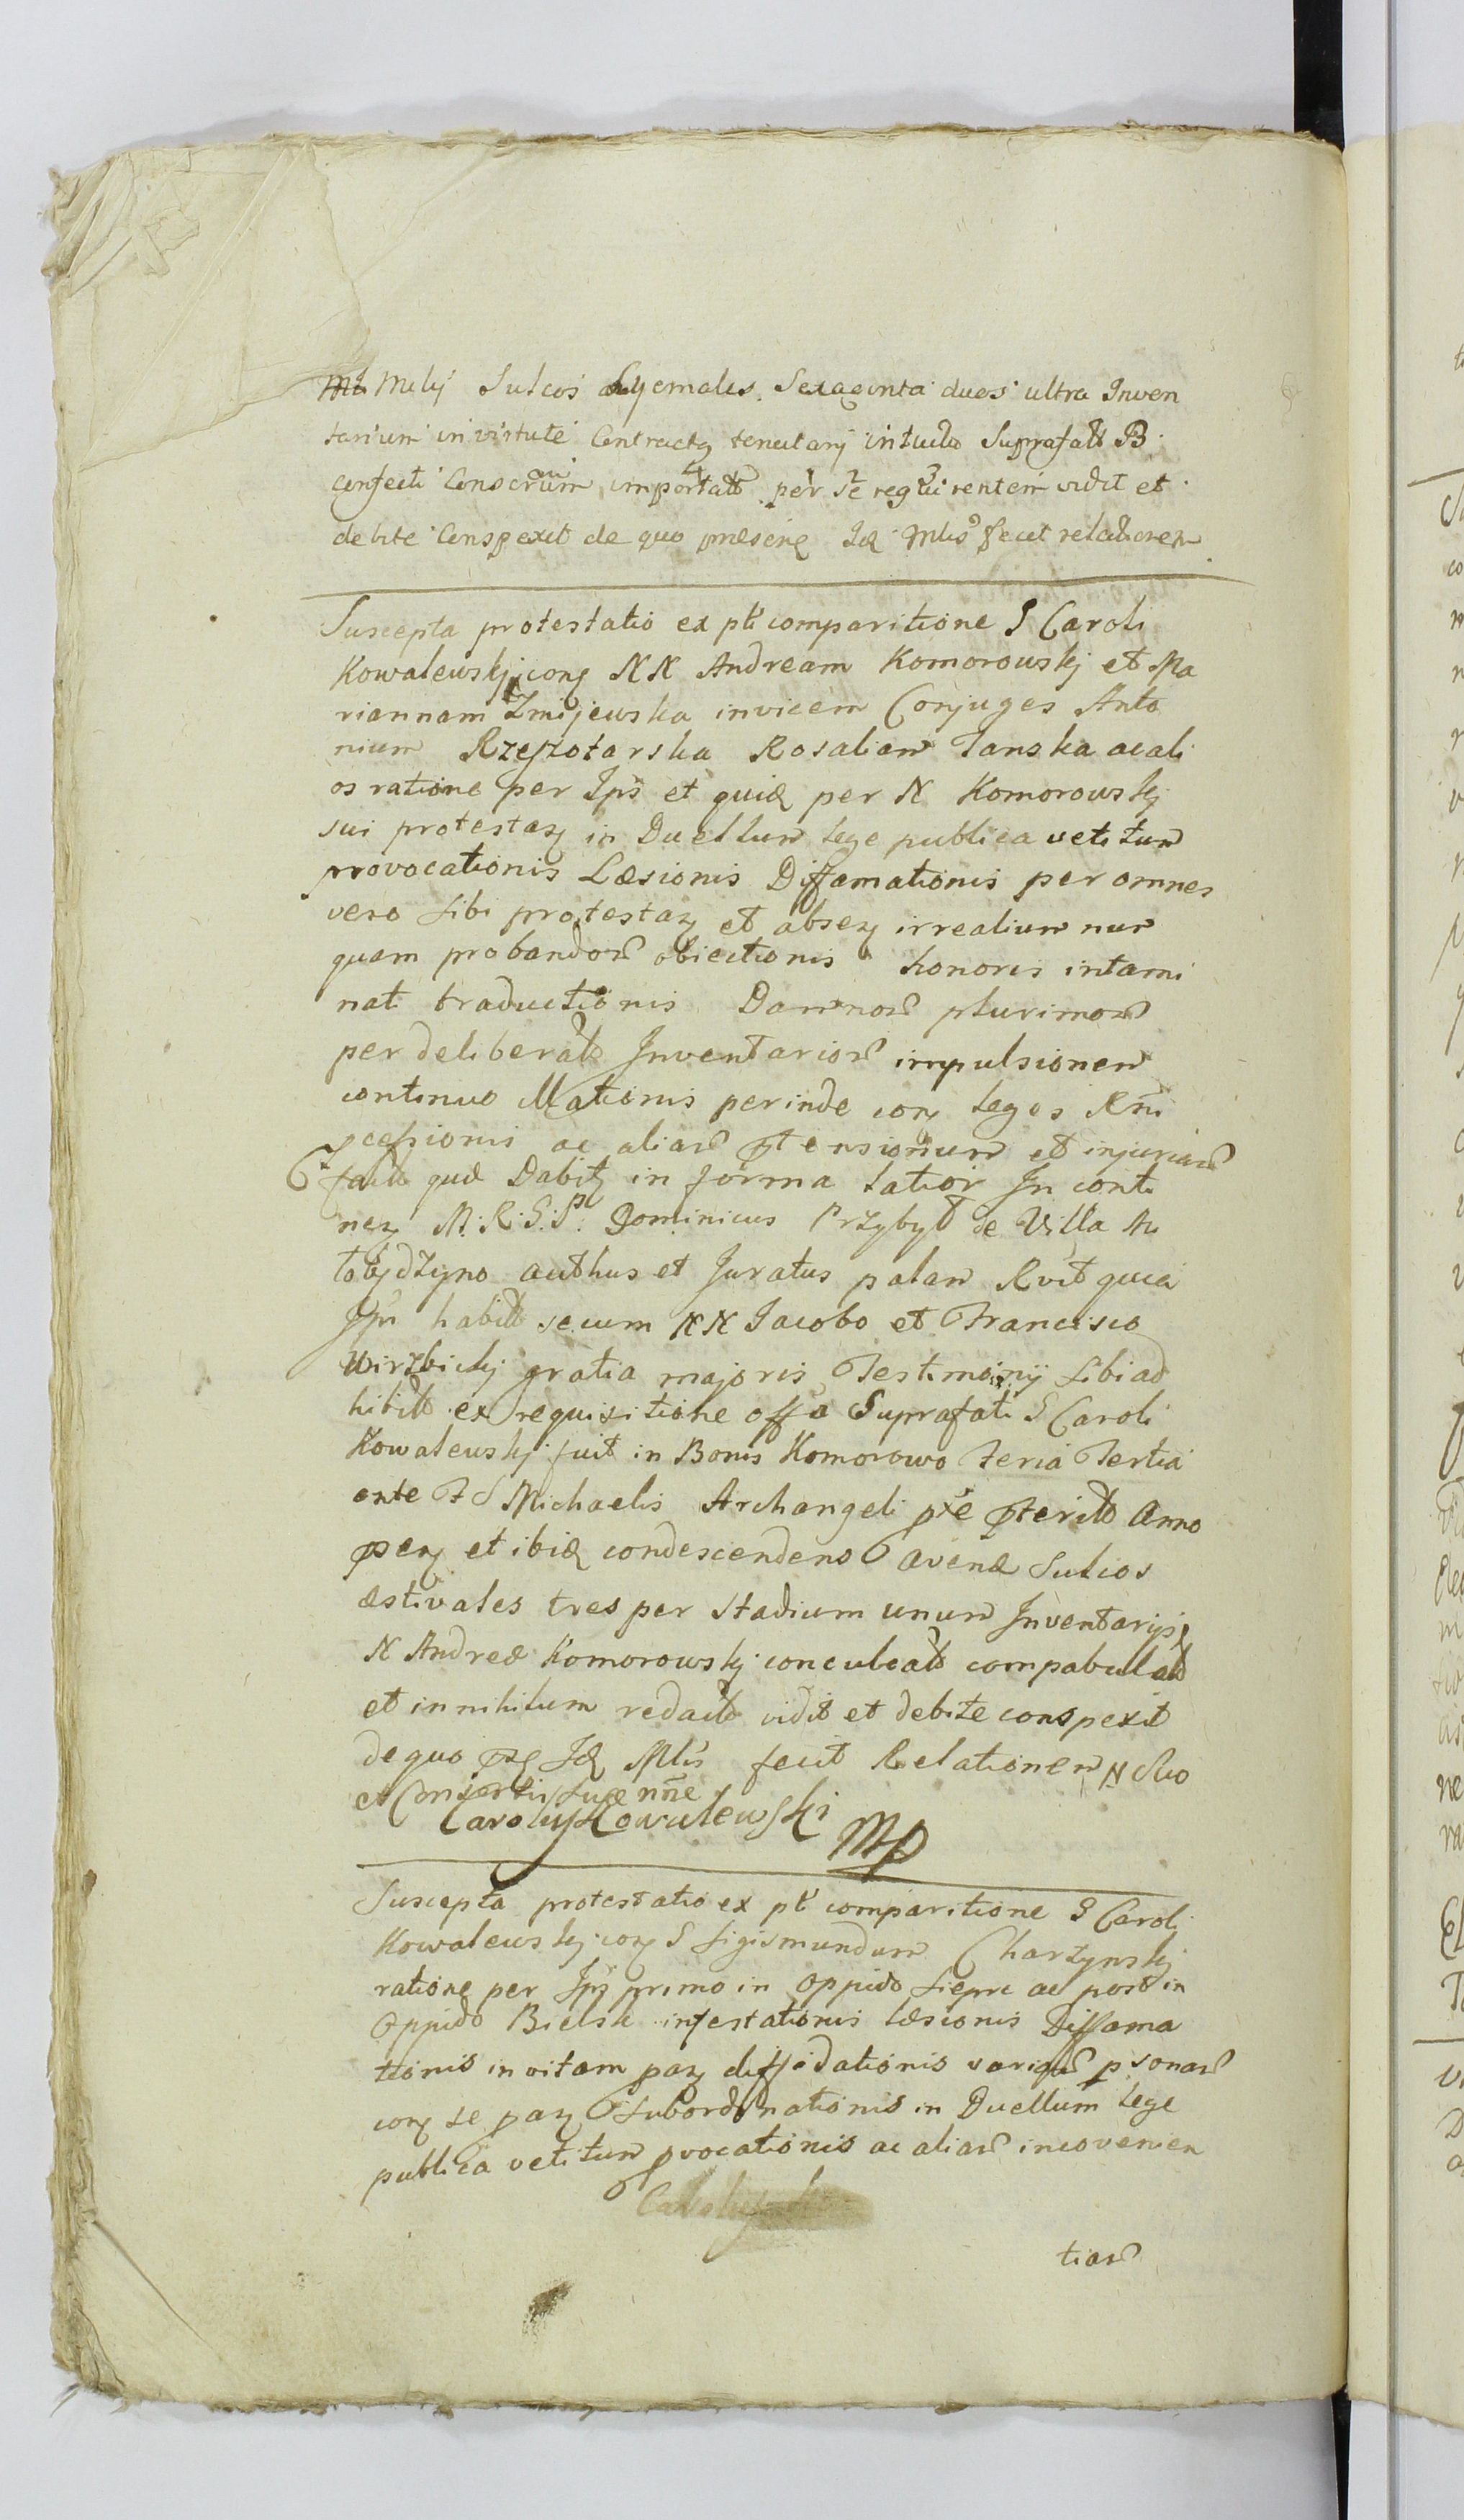 Milij Sulcos hyemales Sexaginta duos ultra Inven
tarium in virtute Contractq tenutarij intuitu Suprafatt B
confecti Conscrium importatt per se requirentem vidit et
debite Conspexit de quo præsenq Idq Mtis fecit relationem
Suscepta protestatio ex pti comparitione S Caroli
Kowalewskj conq NN Andream Komorowskj et Ma
riannam Zmijewska invicem Conjuges Anto
nium Rzeszotarska Rosaliam Janska ac ali
os ratione per Ips et quidq per N Komorowskj
sui protestaq in Duellum lege publica vetitum
provocationis Læsionis Diffamationis per omnes
vero sibi protestaq et abseq irrealium nun
quam probandor obiectionis honoris intami
nati traductionis Damnor plurimor
per deliberatt Inventarior impulsionem
continuo illationis perinde conq leges Rni
pcessionis ac aliar ptensionum et injuriar
fatt quæ Dabitq in forma latior In conti
neq M. R. G. P. Dominicus Przybył de Villa Mo
tojdżyno authus et Juratus palam Rvit quia
Ips habitt secum NN Jacobo et Francisco
Wirzbickj gratia majoris Testimonij sibi ad
hibitt ex requisitione offa Suprafati S Caroli
Kowalewskj fuit in Bonis Komorowo Feria Tertia
ante F S Michaelis Archangeli pxe pteritt Anno
pseq et ibidq condescendens Avenæ Sulcos
æstivales tres per Stadium unum Inventarijs
N Andreæ Komorowskj conculcatt compabulatt
et in nihilum redactt vidit et debite conspexit
de quo pseq Idq Mtis fecit Relationem N Suo
et Consortis suæ nne
Carolij Kowalewski Mp
Suscepta protestatio ex pti comparitione S Caroli
Kowalewskj conq S Sigismundum Charzynskj
ratione per Ips primo in oppido Siepre ac post in
Oppido Bielsk infestationis læsionis Diffama
tionis in vitam paq diffidationis variar psonar
conq se paq subordinationis in Duellum lege
publica vetitum pvocationis ac aliar inconvenien
tiar